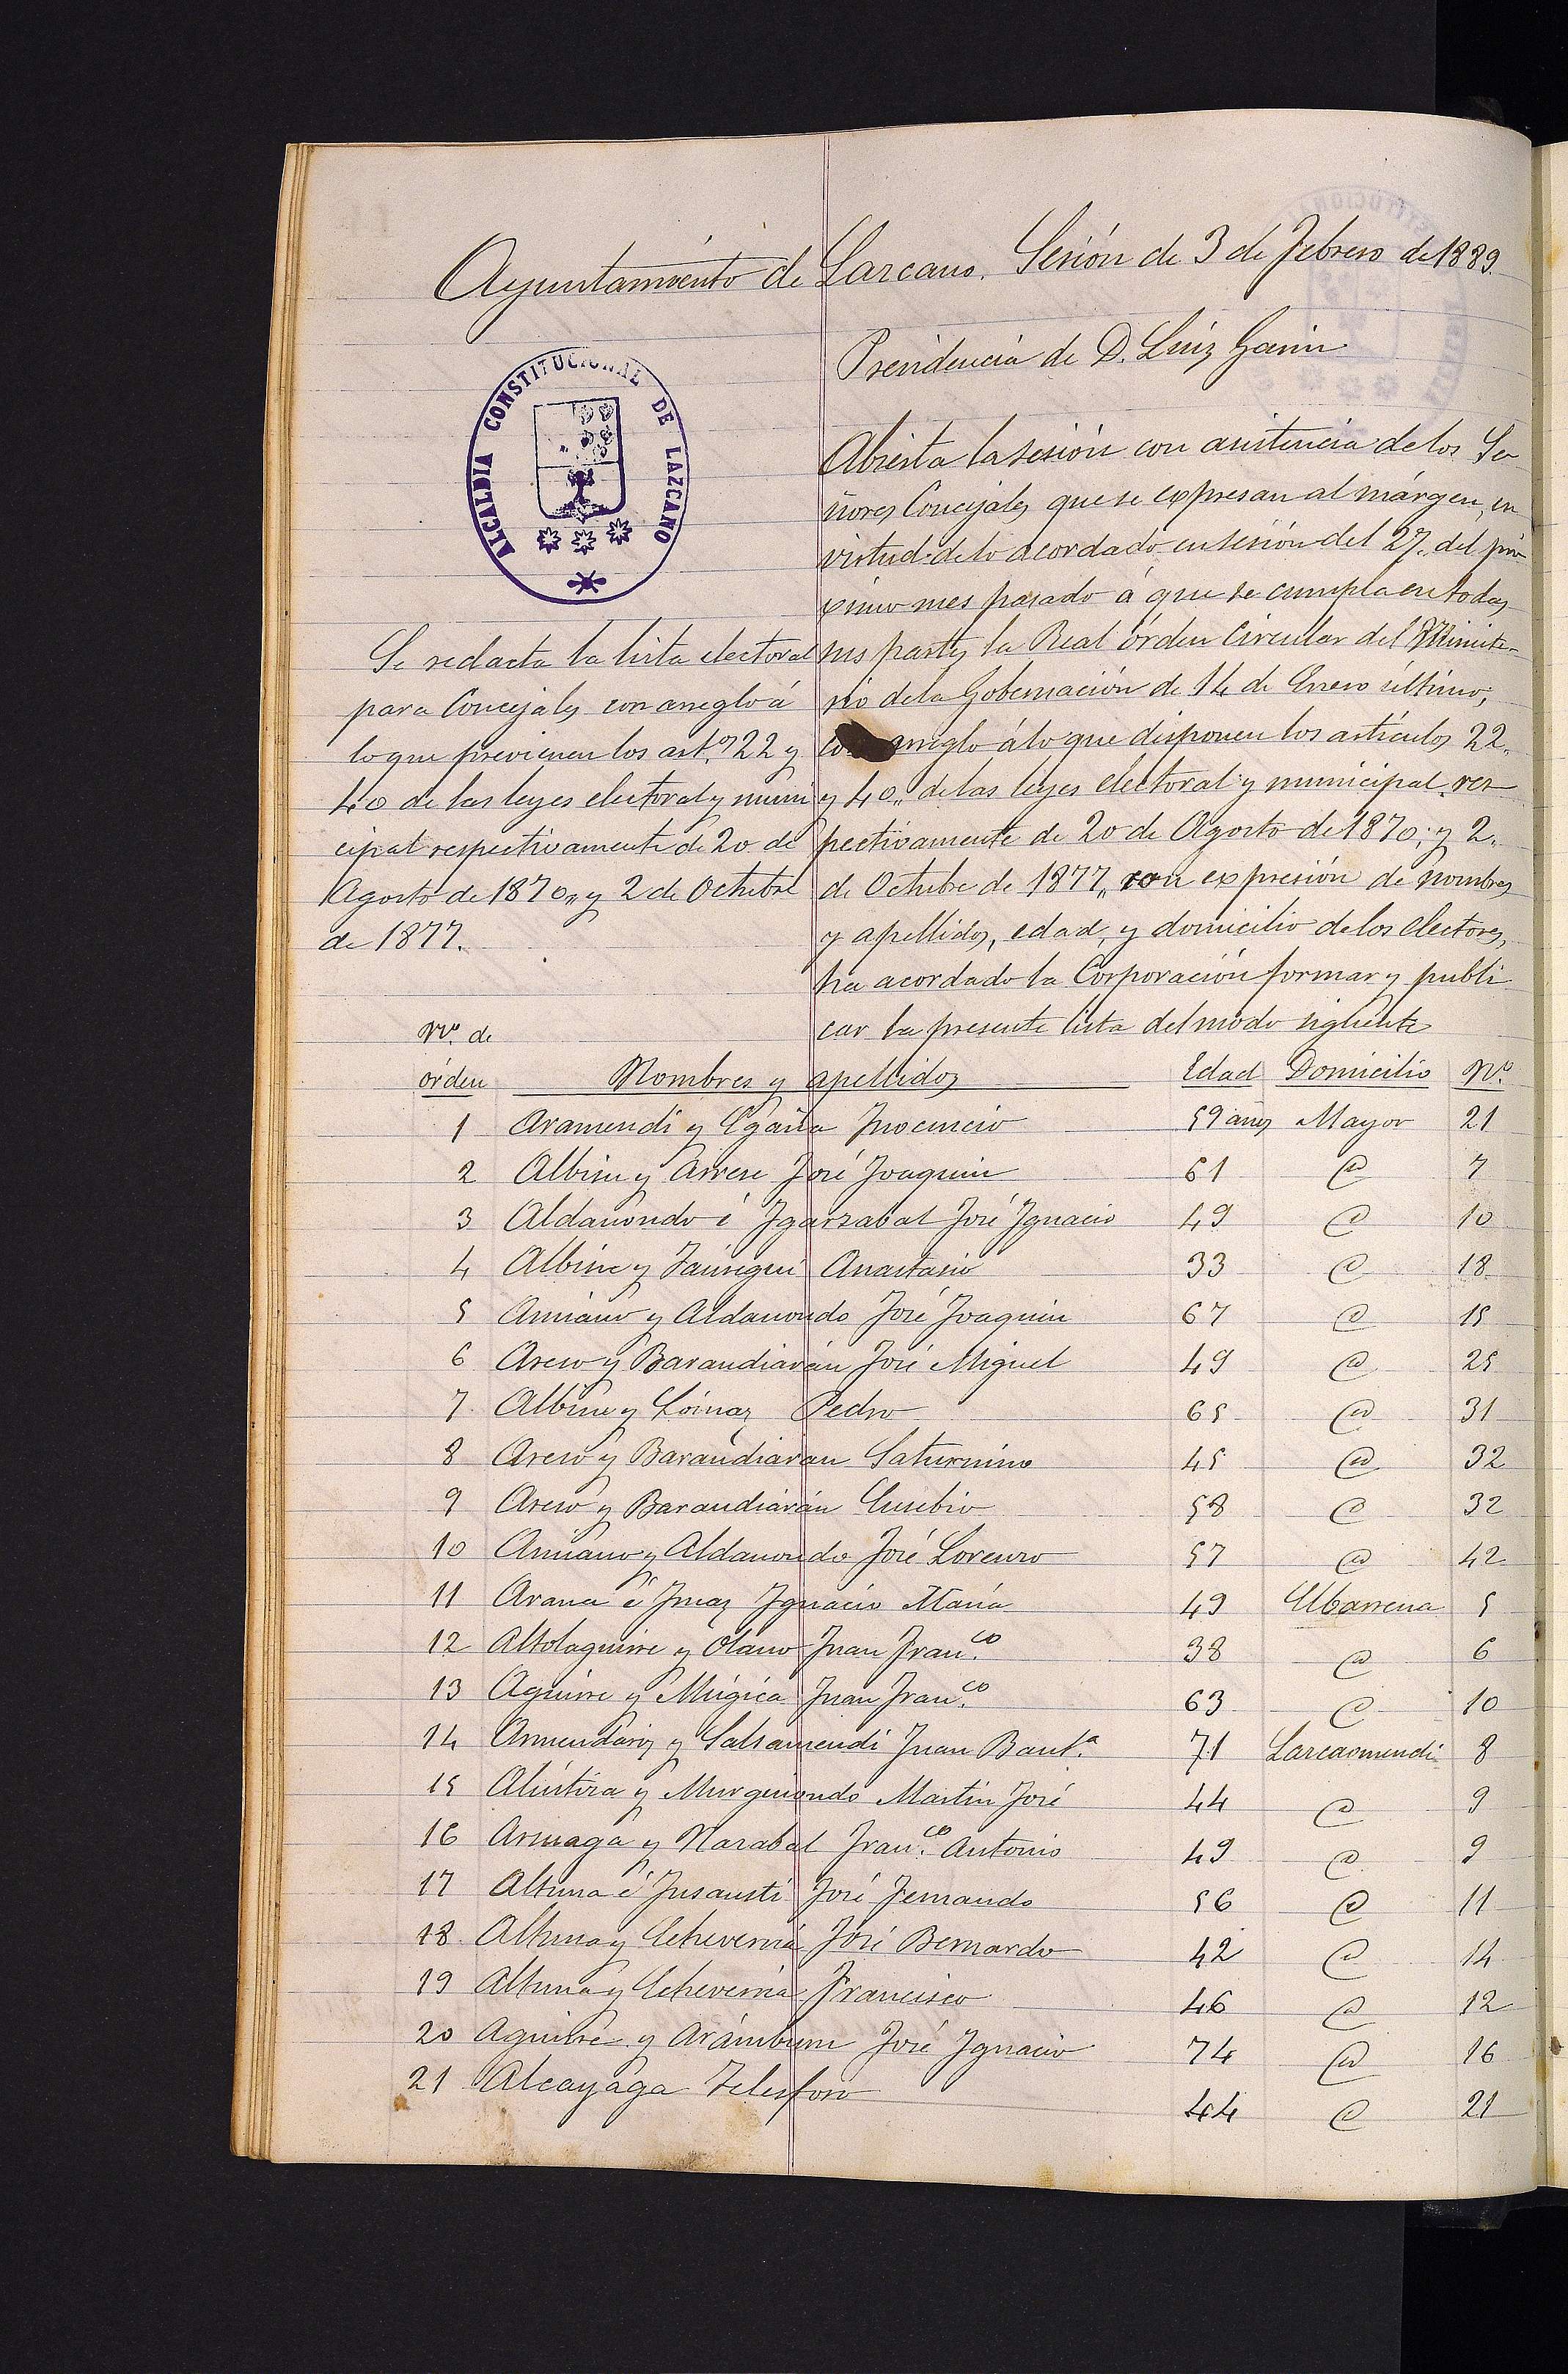 Ayuntamiento de Lazcano. Sesión de 3 de Febrero de 1889.
Presidencia de D. Luiz Garin
ALCALDIA CONSTITUCIONAL DE LAZCANO
Se redacta la lista electoral
para Concejales con arreglo á
lo que previenen los art.os 22 y
40 de las leyes electoral y muni
cipal respectivamente de 20 de
Agosto de 1870,, y 2 de Octubre
de 1877.
Abierta la sesión con asistencia de los Se
ñores Concejales que se expresan al márgen, en
virtud de lo acordado en sesión del 27,, del pró
ximo mes pasado á que se cumpla en todas
sus partes la Real órden Circular del Ministe-
rio de la Gobernación de 14 de Enero último,
con arreglo á lo que disponen los artículos 22,,
y 40,, de las leyes electoral y municipal res
pectivamente de 20 de Agosto de 1870; y 2,,
de Octubre de 1877,, con expresión de nombres
y apellidos, edad, y domicilio de los electores,
ha acordado la Corporación formar y publi
car la presente lista del modo sigiente
Nº. de
órden Nombres y apellidos Edad Domicilio Nº.
1 Aramendi y Egaña Inocencio 59 años Mayor 21
2 Albisu y Arrese José Joaquin 61 @ 7
3 Aldanondo é Igarzabal José Ignacio 49 @ 10
4 Albisu y Jáuregui Anastasio 33 @ 18
5 Amiano y Aldanondo José Joaquin 67 @ 15
6 Areso y Barandiarán José Miguel 49 @ 25
7 Albisu y Loinaz Pedro 65 @ 31
8 Areso y Barandiaran Saturnino 45 @ 32
9 Areso y Barandiarán Eusebio 58 @ 32
10 Amiano y Aldanondo José Lorenzo 57 @ 42
11 Arana é Imaz Ignacio María 49 Elbarrena 5
12 Altolaguirre y Olano Juan Fran.co 38 @ 6
13 Aguirre y Múgica Juan Fran.co 63 @ 10
14 Armendariz y Salsamendi Juan Baut.a 71 Lazcaomendi 8
15 Alustiza y Murguiondo Martin José 44 @ 9
16 Armaga y Narabal Fran.co Antonio 49 @ 9
17 Altuna é Insausti José Fernando 56 @ 11
18 Altuna y Echeverría José Bernardo 42 @ 14
19 Altuna y Echeverría Francisco 46 @ 12
20 Aguirre y Arámburu José Ignacio 74 @ 16
21 Alcayaga Telesforo 44 @ 21